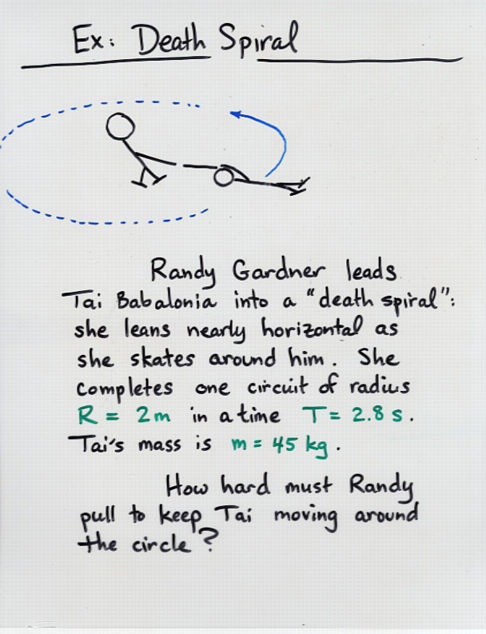 Ex: Death Spiral
Randy Gardner leads
Tai Babalonia into a "death spiral":
she leans nearly horizontal as
she skates around him. She
completes one circuit of radius
R = 2m in a time T = 2.8 s.
Tai's mass is m = 45 kg.
How hard must Randy
pull to keep Tai moving around
the circle?